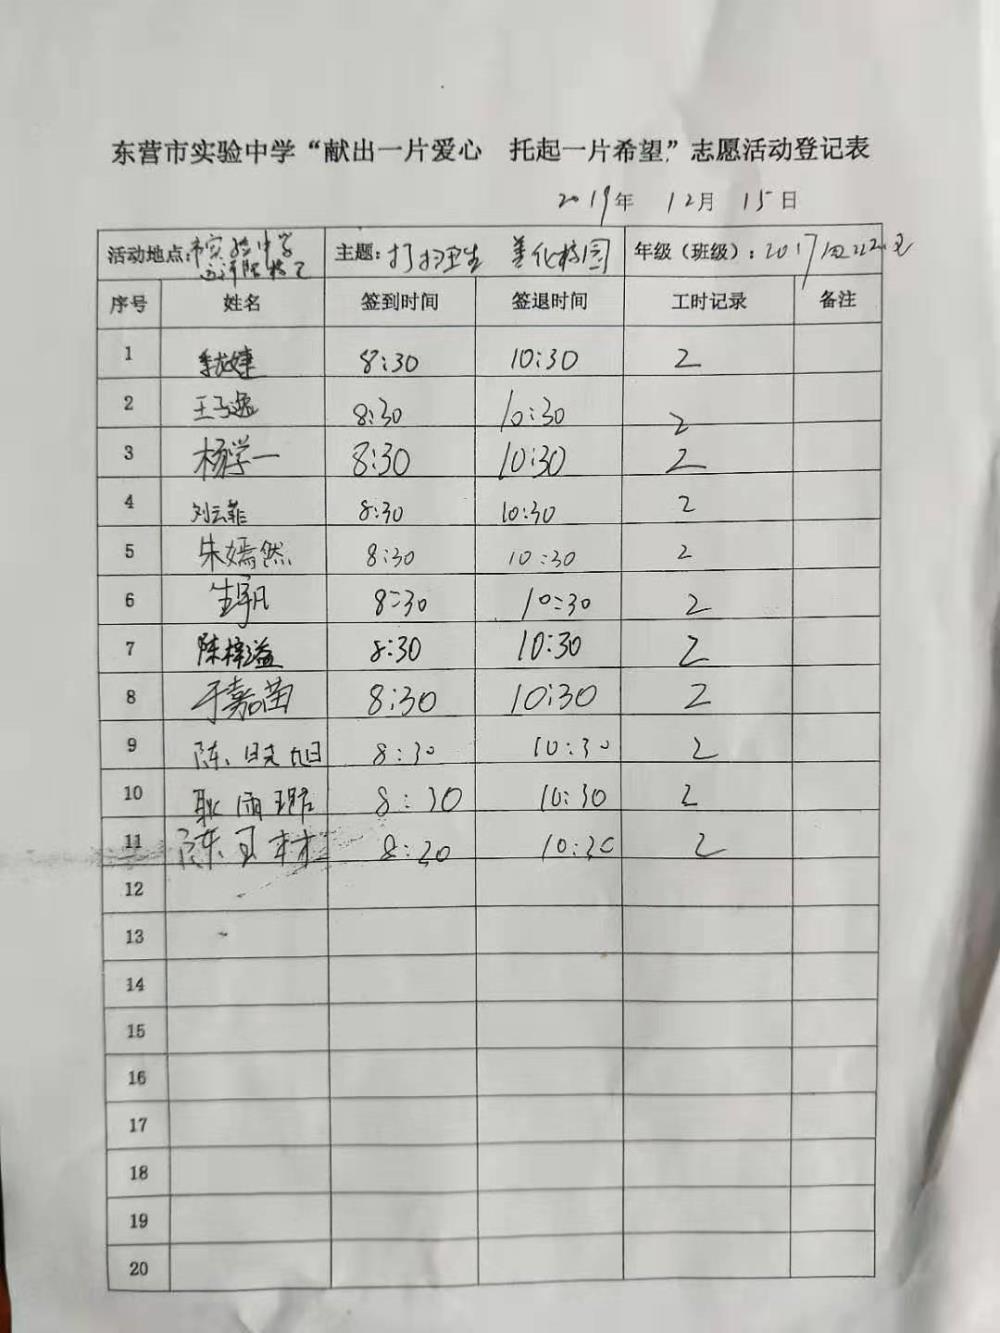 东营市实验中学“献出一片爱心 托起一片希望”志愿活动登记表
2019年 12月 15日
活动地点:市实验中学 主题:打扫卫生 美化校园 年级(班级):2017级
序号 姓名 签到时间 签退时间 工时记录 备注
1 8:30 10:30 2
2 王子逸 8:30 10:30 2
3 杨学一 8:30 10:30 2
4 刘云菲 8:30 10:30 2
5 朱嫣然 8:30 10:30 2
6 8:30 10:30 2
7 陈梓溢 8:30 10:30 2
8 于嘉苗 8:30 10:30 2
9 陈晓旭 8:30 10:30 2
10 耿雨珺 8:30 10:30 2
11 陈玉林 8:30 10:30 2
12
13
14
15
16
17
18
19
20